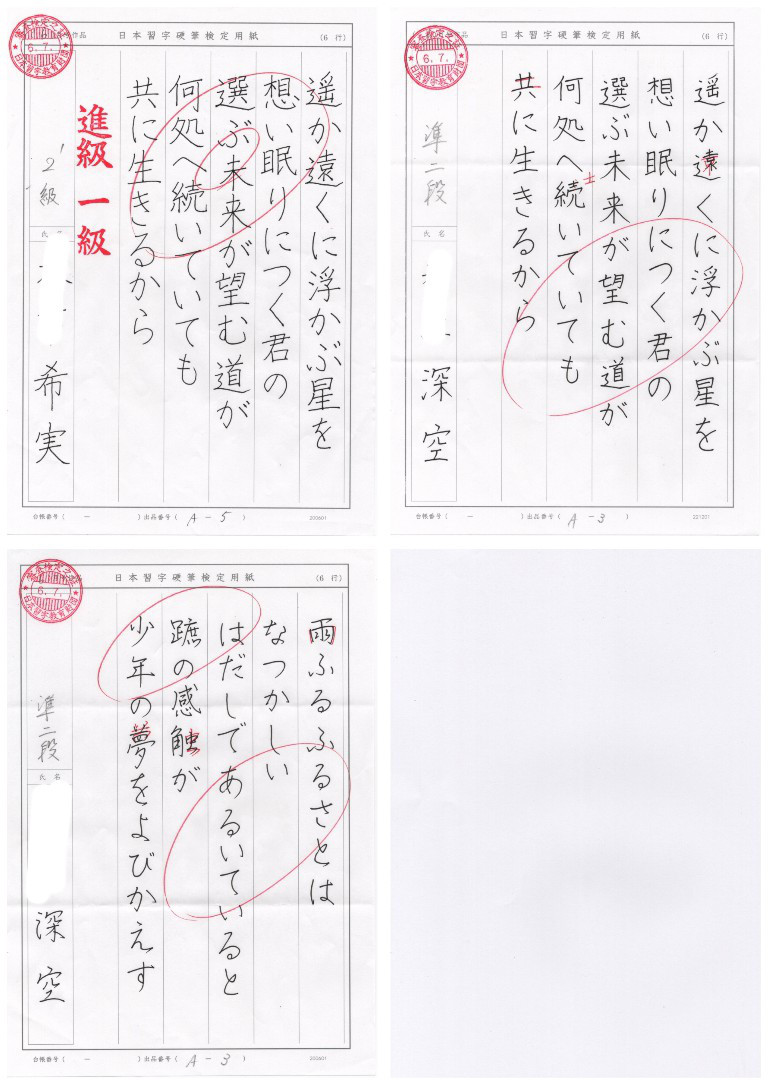 日本習字硬筆検定用紙
(6 行)
遥か遠くに浮かぶ星を
想い眠りにつく君の
選ぶ未来が望む道が
何処へ続いていても
共に生きるから
進級 一級
2級
氏名
希実
6.7.
日本習字教育財団
台帳番号( - )出品番号( A-5 )
200601
日本習字硬筆検定用紙
(6 行)
遥か遠くに浮かぶ星を
想い眠りにつく君の
選ぶ未来が望む道が
何処へ続いていても
士
共に生きるから
準二段
氏名
深空
6.7.
日本習字教育財団
台帳番号( - )出品番号( A-3 )
201201
日本習字硬筆検定用紙
(6 行)
雨ふるふるさとは
なつかしい
はだしであるいていると
蹠の感触が
少年の夢をよびかえす
準二段
氏名
深空
6.7.
日本習字教育財団
台帳番号( - )出品番号( A-3 )